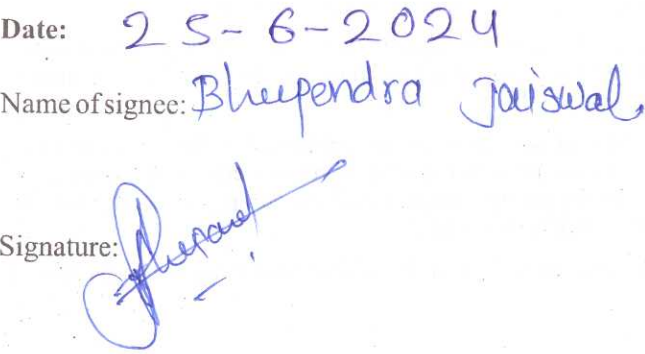 Date: 25-6-2024
Name of signee: Bhupendra Jaiswal
Signature: